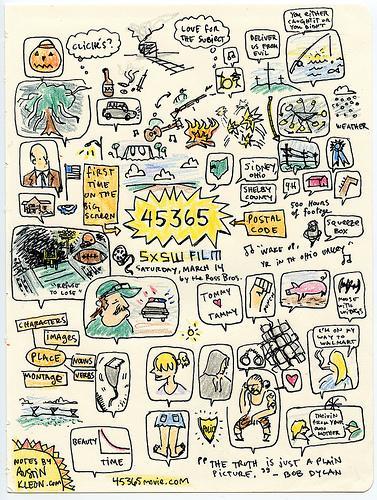 CLICHÉS?
LOVE FOR
THE SUBJECT
DELIVER
US FROM
EVIL
YOU EITHER
CAUGHT IT OR
YOU DIDN'T
WEATHER
FIRST
TIME
ON THE
BIG
SCREEN
SIDNEY,
OHIO
SHELBY
COUNTY
4H
500 HOURS
of footage
45365
POSTAL
CODE
SQUEEZE
BOX
SXSW FILM
SATURDAY, MARCH 14
by the Ross Bros.
"WAKE UP,
YR IN TH OHIO VALLEY"
"REFUSE
TO LOSE"
TOMMY
TAMMY
CHARACTERS
IMAGES
PLACE
NOUNS
VERBS
MONTAGE
I'M ON MY
WAY TO
WALMART
FROM YOUR
OWN
MOTHER
BEAUTY
TIME
NOTES BY
AUSTIN
KLEON.com
45365movie.com
"THE TRUTH IS JUST A PLAIN
PICTURE." — BOB DYLAN